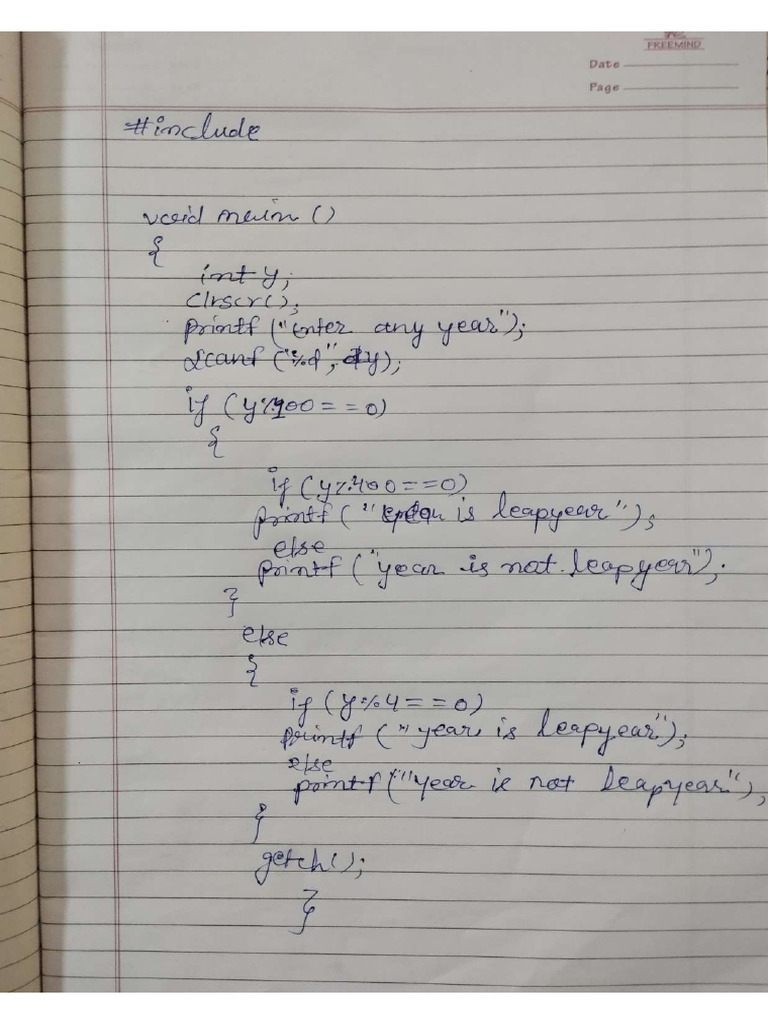 FREEMIND
Date
Page
#include
void main ()
{
int y;
clrscr();
printf ("Enter any year");
scanf ("%d", &y);
if (y%100==0)
{
if (y%400==0)
printf (" is leapyear");
else
printf ("year is not leapyear");
}
else
{
if (y%4==0)
printf ("year is leapyear");
else
printf ("year is not leapyear");
}
getch();
}